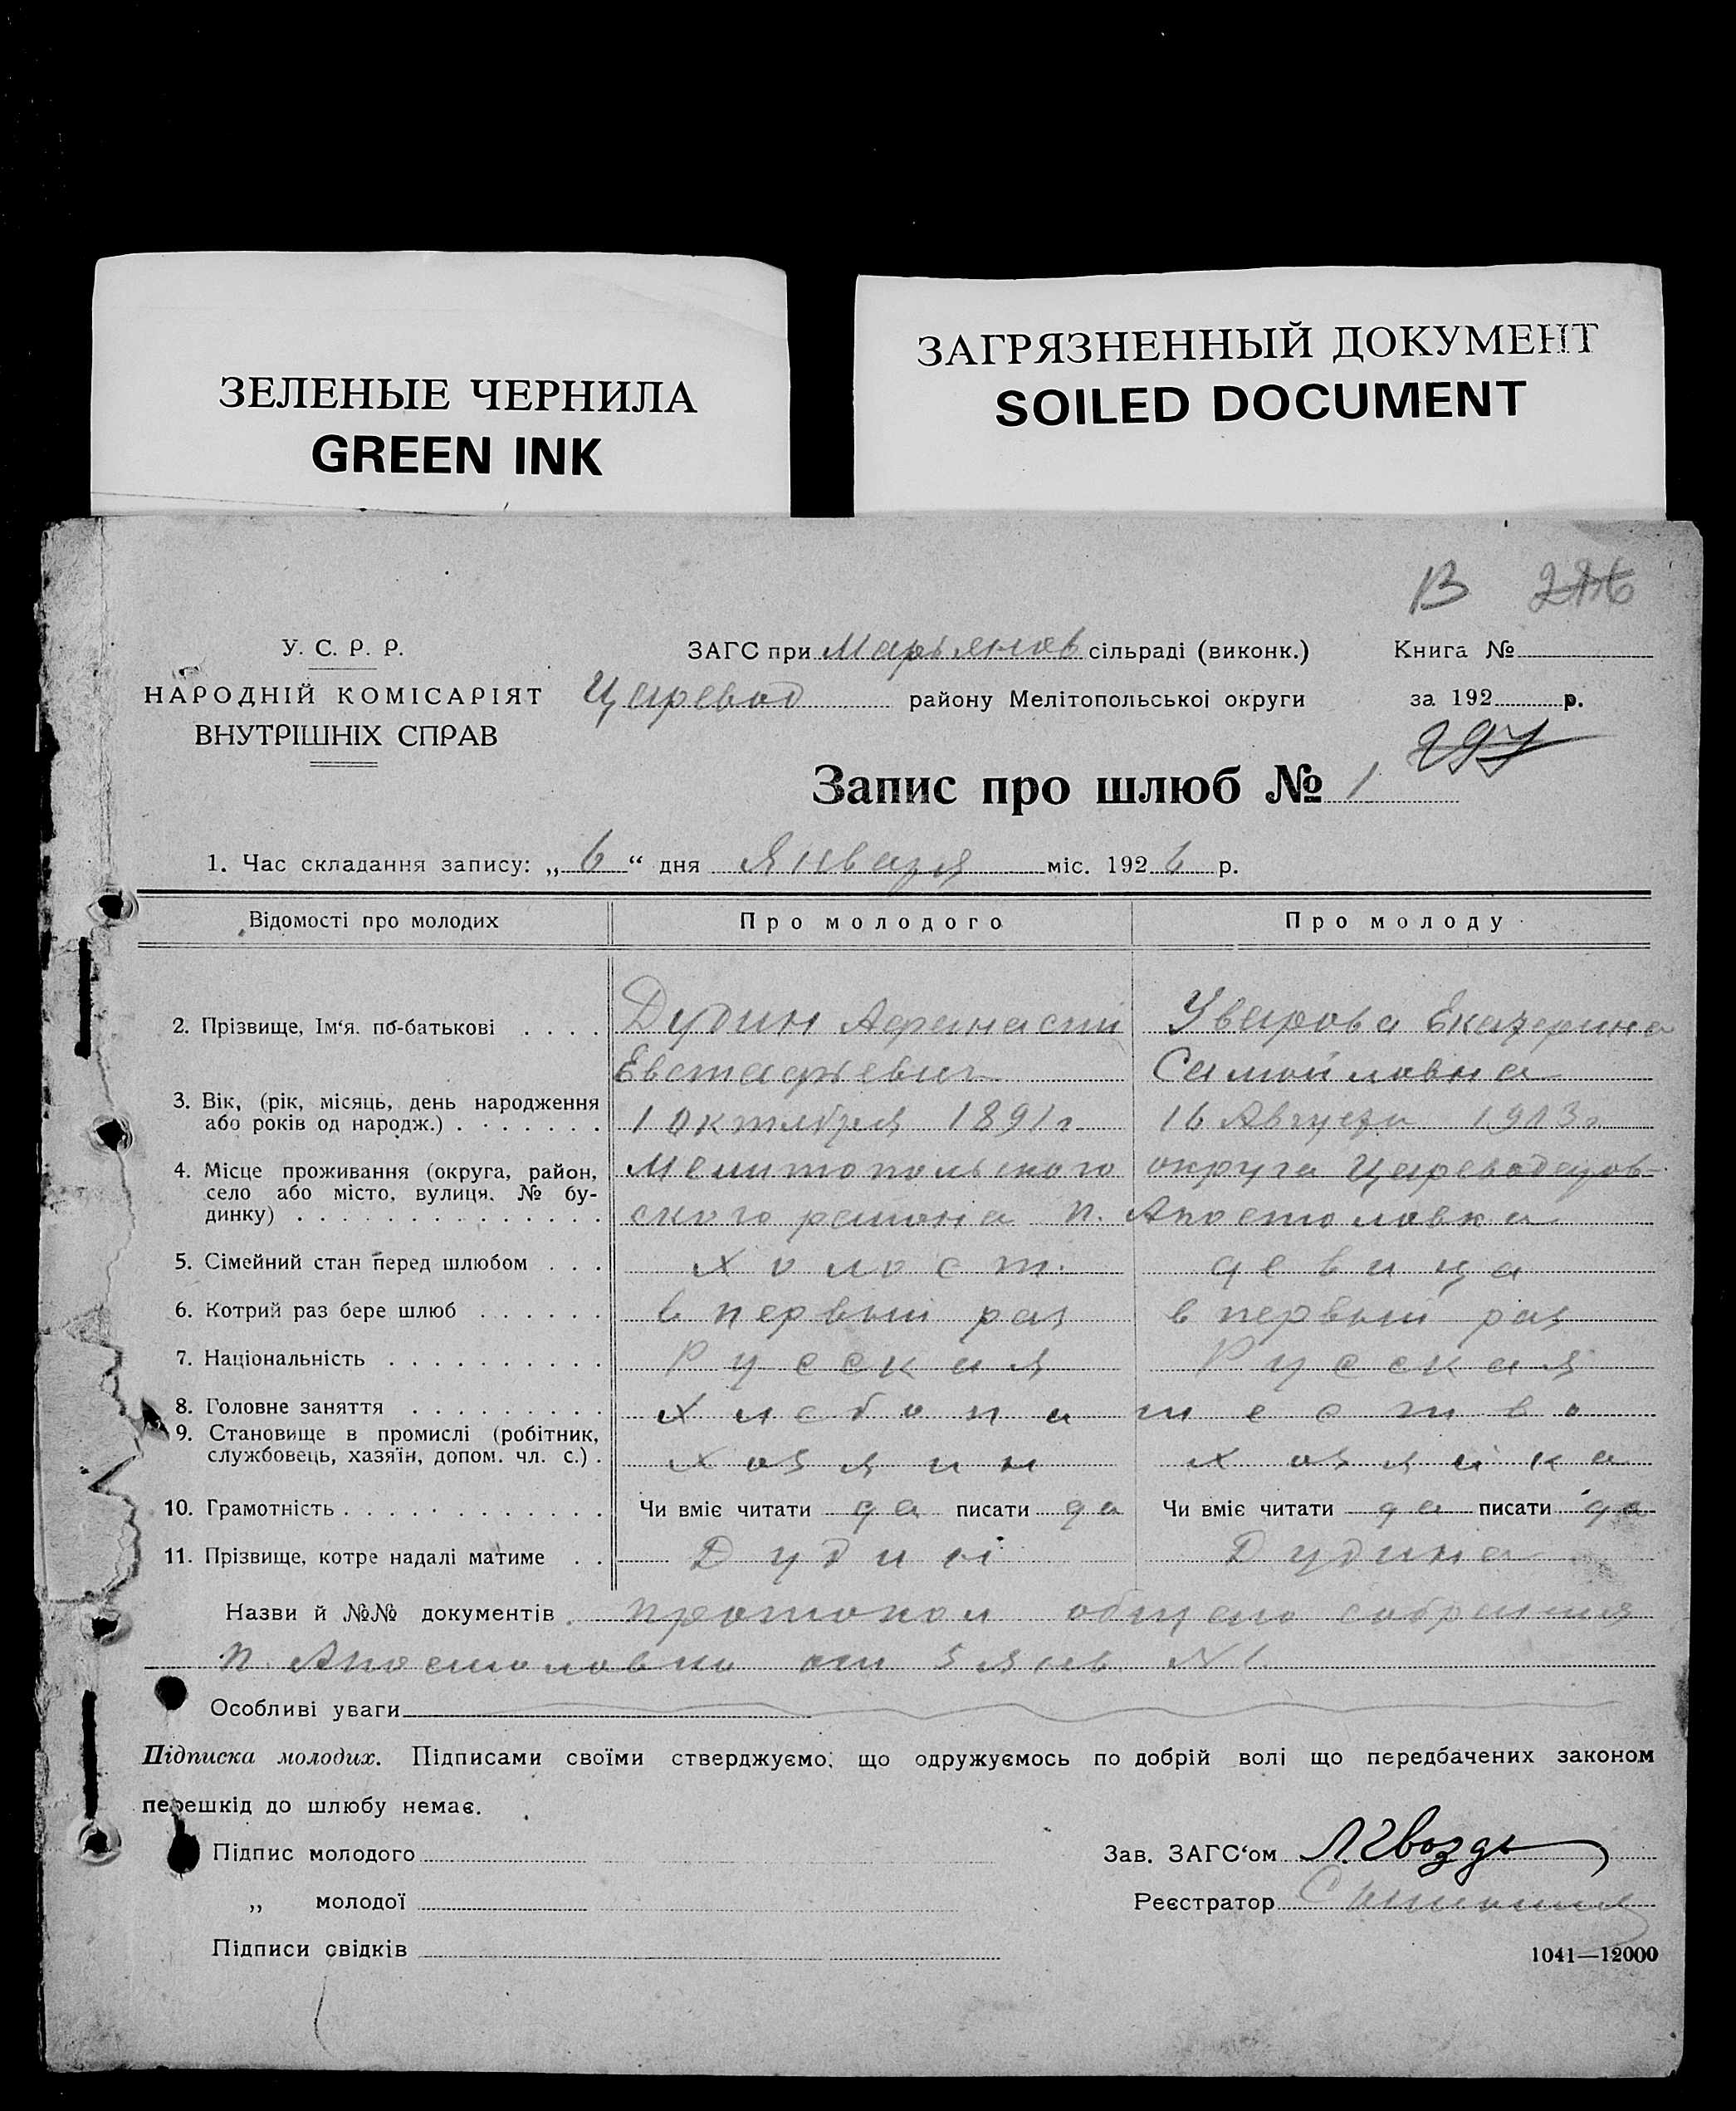 ЗЕЛЕНЫЕ ЧЕРНИЛА
GREEN INK
ЗАГРЯЗНЕННЫЙ ДОКУМЕНТ
SOILED DOCUMENT
В
У. С. Р. Р.
НАРОДНІЙ КОМІСАРІЯТ
ВНУТРІШНІХ СПРАВ
ЗАГС при Марьянов сільраді (виконк.)
Царевод району Мелітопольської округи
Книга №
за 192 р.
297
Запис про шлюб № 1
1. Час складання запису: „6“ дня Января міс. 1926 р.
Відомості про молодих Про молодого Про молоду
2. Прізвище, Ім‘я. по-батькові . . . . Дудин Афанасий Уварова Екатерина
Евстафьевич Самойловна
3. Вік, (рік, місяць, день народження
або років од народж.) . . . . . . . 1 Октября 1891 г. 16 Августа 1903 г.
4. Місце проживання (округа, район,
село або місто, вулиця, № бу-
динку) . . . . . . . . . . . . . .
Мелитопольского округа Цареводаров-
ского района п. Апостоловка
5. Сімейний стан перед шлюбом . . . холост. девица
6. Котрий раз бере шлюб . . . . . . в первый раз в первый раз
7. Національність . . . . . . . . . . Русская Русская
8. Головне заняття . . . . . . . . . Хлебопашество
9. Становище в промислі (робітник,
службовець, хазяїн, допом. чл. с.) . хозяин хозяйка
10. Грамотність . . . . . . . . . . . . Чи вміє читати да писати да Чи вміє читати да писати да
11. Прізвище, котре надалі матиме . . Дудин Дудина
Назви й №№ документів . протокол общего собрания
п. Апостоловки от 5 янв. № 1.
Особливі уваги
Підписка молодих. Підписами своїми стверджуємо, що одружуємось по добрій волі що передбачених законом
перешкід до шлюбу немає.
Підпис молодого
„ молодої
Підписи свідків
Зав. ЗАГС‘ом Л. Гвоздь
Реєстратор
1041—12000